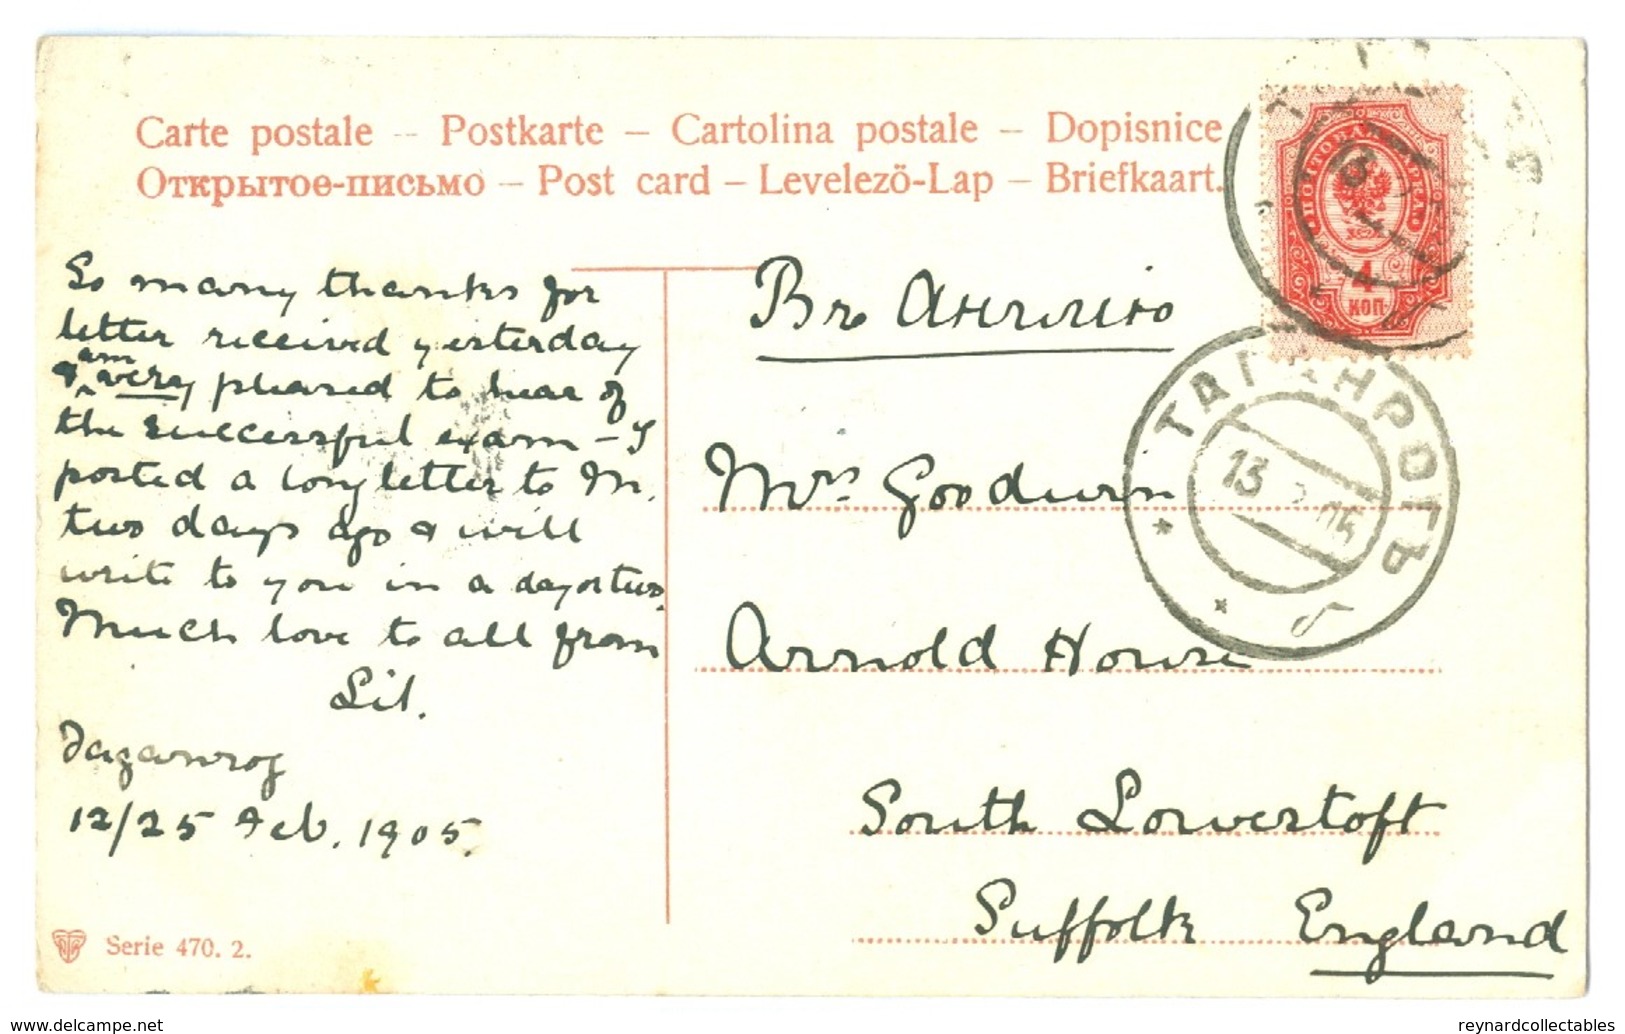 Carte postale – Postkarte – Cartolina postale – Dopisnice
Открытое-письмо – Post card – Levelező-Lap – Briefkaart.
So many thanks for
letter received yesterday
& am very pleased to hear of
the successful exam – I
posted a long letter to M.
two days ago & will
write to you in a day or two.
Much love to all from
Lil.
Taganrog
12/25 Feb. 1905.
Serie 470. 2.
Въ Англию
Mrs Goodwin
Arnold House
South Lowestoft
Suffolk England
ПОЧТОВАЯ МАРКА
4
КОП.
ТАГАНРОГЪ
13 2 05
delcampe.net
reynardcollectables